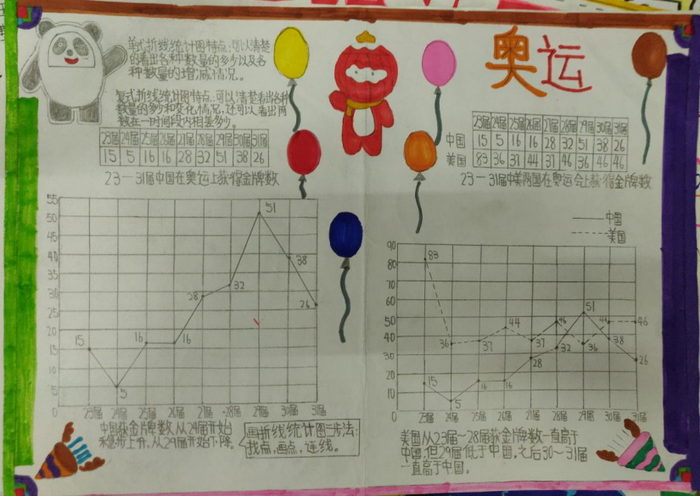 单式折线统计图特点:可以清楚
的看出各种数量的多少以及各
种数量的增减情况。
复式折线统计图特点:可以清楚看出各种
数量的多少和变化情况,还可以看出两
数在一时间段内相差多少。
23届 24届 25届 26届 27届 28届 29届 30届 31届
15 5 16 16 28 32 51 38 26
23—31届中国在奥运上获得金牌数
奥运
23届 24届 25届 26届 27届 28届 29届 30届 31届
中国 15 5 16 16 28 32 51 38 26
美国 83 36 37 44 37 46 36 46 46
23—31届中美两国在奥运会上获得金牌数
中国
美国
55
50
45
40
35
30
25
20
15
10
5
0
15 5 16 16 28 32 51 38 26
23届 24届 25届 26届 27届 28届 29届 30届 31届
90
80
70
60
50
40
30
20
10
0
83 36 37 44 37 46 36 46 46
15 5 16 16 28 32 51 38 26
23届 24届 25届 26届 27届 28届 29届 30届 31届
中国获金牌数,从24届开始
稳步上升,从29届开始下降。
画折线统计图三步法:
找点,画点,连线。
美国从23届—28届获金牌数一直高于
中国,但29届低于中国,之后30—31届
一直高于中国。